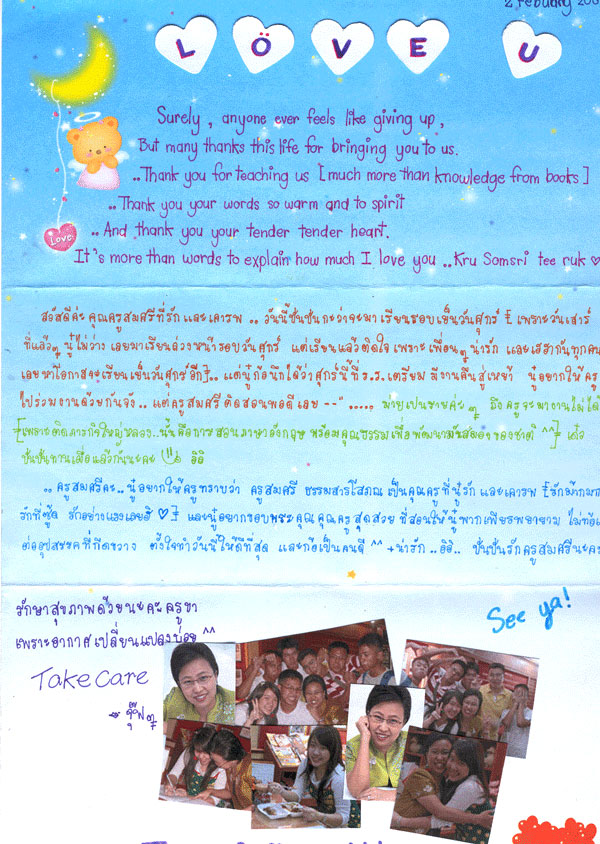 2 Febuary
LÖVE U
Surely , anyone ever feels like giving up ,
But many thanks this life for bringing you to us.
..Thank you for teaching us [much more than knowledge from books]
..Thank you your words so warm and to spirit
..And thank you your tender tender heart.
It's more than words to explain how much I love you ..Kru Somsri tee ruk ♡
Love
สวัสดีค่ะ คุณครูสมศรีที่รัก และเคารพ .. วันนี้ชั้นชั้นกะว่าจะมา เรียนรอบเย็นวันศุกร์ [ เพราะวันเสาร์
ที่แล้วๆ นู๋ไม่ว่าง เลยมาเรียนล่วงหน้ารอบวันศุกร์ แต่เรียนแล้วติดใจ เพราะ เพื่อนๆ น่ารัก และเฮฮากันทุกคน
เลยหาโอกาสจะเรียนเย็นวันศุกร์อีก].. แต่นู๋ก็นึกได้ว่าศุกร์นี้ที่ ร.ร.เตรียม มีงานคืนสู่เหย้า นู๋อยากให้ครู
ไปร่วมงานด้วยกันจัง.. แต่ครูสมศรี ติดสอนพอดี เลย --" .....
ถึง ครูจะมางานไม่ได้
[เพราะติดภารกิจใหญ่หลวง..นั้นคือการสอนภาษาอังกฤษ พร้อมคุณธรรม เพื่อพัฒนามันสมองของชาติ ^^] เดี๋ย
ชั้นชั้นทานเผื่อแล้วกันนะคะ อิอิ
.. ครูสมศรีคะ.. นู๋อยากให้ครูทราบว่า ครูสมศรี ธรรมสารโสภณ เป็นคุณครูที่นู๋รัก และเคารพ [รักมากมาก
รักที่ซู้ด รักอย่างแรงเลยอิ ♡] และนู๋อยากขอบพระคุณ คุณครูสุดสวย ที่สอนให้นู๋ พากเพียรพยายาม ไม่ท้อ
ต่ออุปสรรคที่กีดขวาง ตั้งใจทำวันนี้ให้ดีที่สุด และก้อเป็นคนดี ^^ +น่ารัก ..อิอิ.. ชั้นชั้นรักครูสมศรีนะคะ
รักษาสุขภาพด้วยนะคะครูขา
เพราะอากาศเปลี่ยนแปลงบ่อย ^^
See ya!
Take care